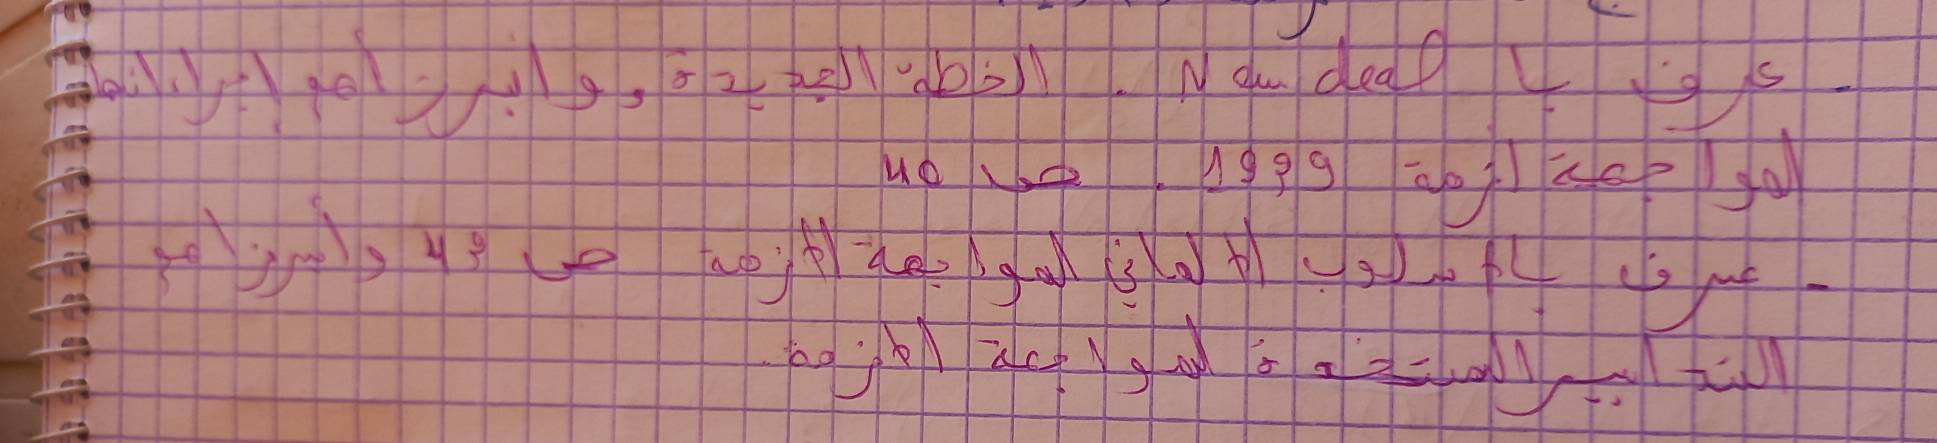 - عرف ب New deal . الخطة الجديدة , وابرز اهم إجراءاتها
لمواجهة ازمة 1939 . ص 40
- عرف بالاسلوب الالماني لمواجهة الازمة ص 43 وابرز اهم
التدابير المتخدة لمواجهة الازمة.